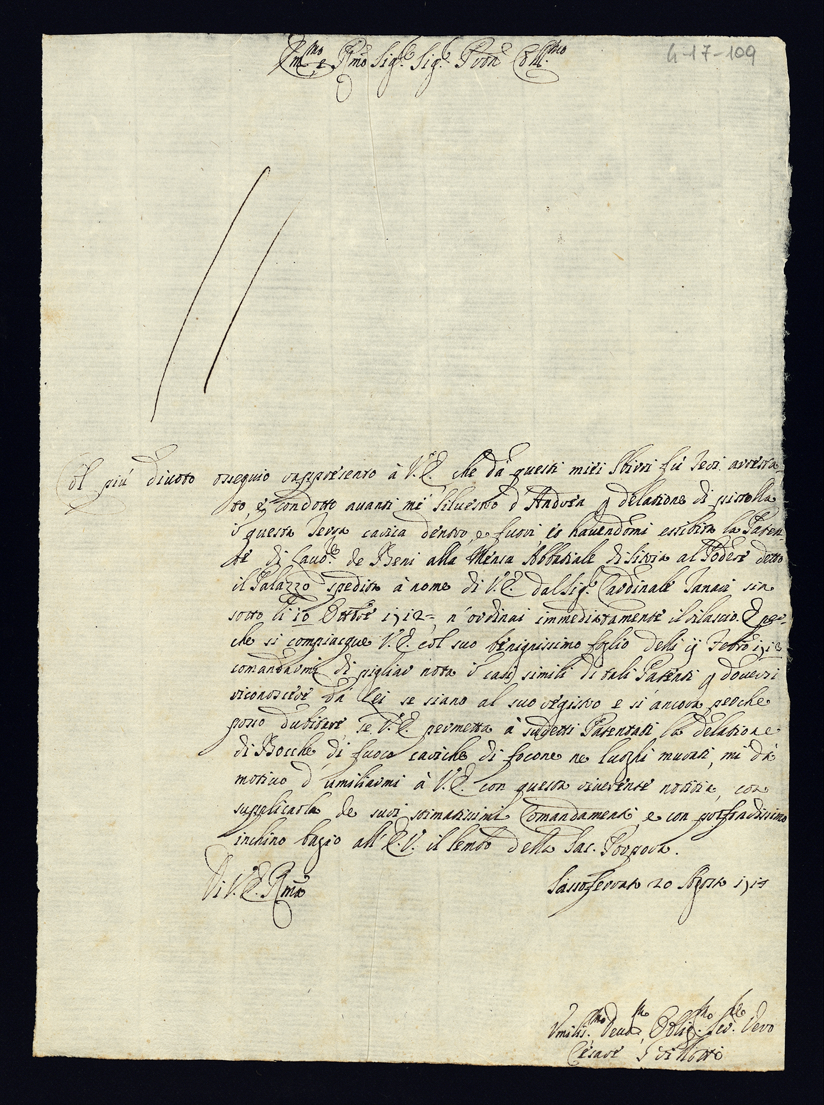 4-17-109
Em.mo e R.mo Sig.r Sig.r Pron Col.mo
Col più divoto ossequio rappresento à V.E. che dà questi miei Sbirri fù Ieri arresta
to, e condotto avanti mè Silvestro d'Andrea p delatione di pistolla
è questa senza carica dentro, e fuori, et havendomi essibita la Paten
te di Lav.re de Beni alla Mensa Abbatiale di Silvia al Podere detto
il Palazzo spedita à nome di V.E. dal Sig.r Cardinale Tanara sin
sotto li 10 Ottbre 1712, n'ordinai immediatamente il rilascio. E per
che si compiacque V.E. col suo benignissimo foglio delli
comandarmi di pigliar nota i casi simili di tali Patenti p doversi
riconoscere da lei se siano al suo registro e si ancora perche
posso dubitare, se V.E. permetta à sudetti Patentati la delatione
di Bocche di fuoco cariche di focone ne luoghi murati, mi dà
motivo d'umiliarmi à V.E. con questa riverente notitia, con
supplicarla de suoi stimatissimi Comandamenti, e con profondissimo
inchino bagio all'E.V. il lembo della Sac. Porpora.
Di V.E. R.ma
Sassoferrato 20 Agosto
Umilis.mo Devot.mo Oblig.mo Ser.re Vero
Cesare